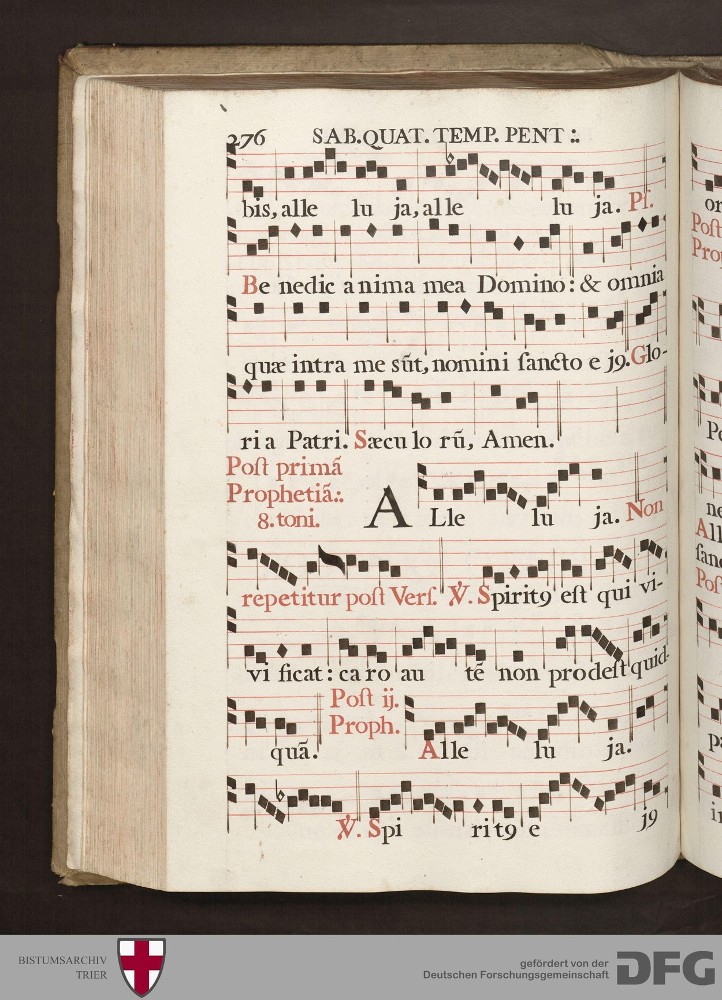 276 SAB.QUAT. TEMP. PENT :.
bis, alle lu ja, alle lu ja. Pſ.
Be nedic anima mea Domino: & omnia
quæ intra me sūt, nomini ſancto e j9. Glo-
ri a Patri. Sæcu lo rū, Amen.
Poſt primā
Prophetiā:.
8. toni.
A Lle lu ja. Non
repetitur poſt Verſ. ℣. Spirit9 eſt qui vi-
vi ficat: ca ro au tē non prodeſt quid-
quā.
Poſt ij.
Proph.
Alle lu ja.
℣. Spi rit9 e j9
or
Poſt
Pro
Po
ne
All
ſan
Poſ
pa
in
BISTUMSARCHIV
TRIER
gefördert von der
Deutschen Forschungsgemeinschaft
DFG